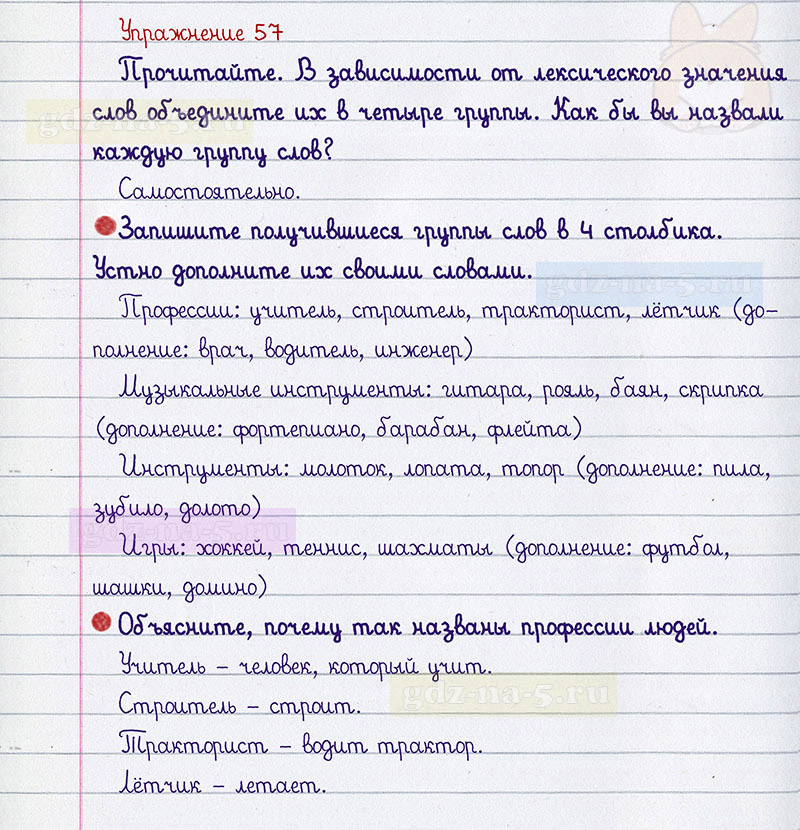 Упражнение 57
Прочитайте. В зависимости от лексического значения
слов объедините их в четыре группы. Как бы вы назвали
gdz-na-5.ru
каждую группу слов?
Самостоятельно.
Запишите получившиеся группы слов в 4 столбика.
Устно дополните их своими словами.
gdz-na-5.ru
Профессии: учитель, строитель, тракторист, лётчик (до-
полнение: врач, водитель, инженер)
Музыкальные инструменты: гитара, рояль, баян, скрипка
(дополнение: фортепиано, барабан, флейта)
Инструменты: молоток, лопата, топор (дополнение: пила,
зубило, долото)
gdz-na-5.ru
Игры: хоккей, теннис, шахматы (дополнение: футбол,
шашки, домино)
Объясните, почему так названы профессии людей.
Учитель – человек, который учит.
gdz-na-5.ru
Строитель – строит.
Тракторист – водит трактор.
Лётчик – летает.